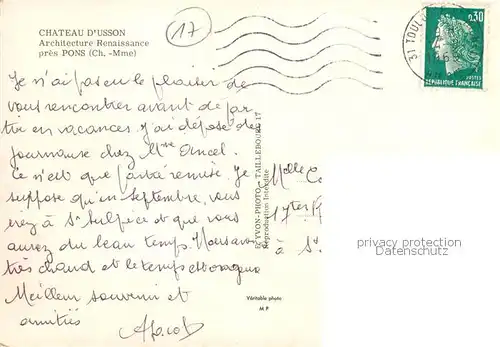 CHATEAU D'USSON
Architecture Renaissance
près PONS (Ch.-Mme)
17
31 TOULO
0,30
POSTES
REPUBLIQUE FRANÇAISE
Je n'ai pas eu le plaisir de
vous rencontrer avant de par
tir en vacances. J'ai déposé de
chez
Ce n'est que partie remise. Je
suppose qu'en septembre, vous
irez à St Sulpice et que vous
aurez du beau temps. Nous avons
très chaud et le temps est orageux
Meilleur souvenir et
amitiés
YVON-PHOTO-TAILLEBOURG 17
Reproduction Interdite
Melle
à St
privacy protection
Datenschutz
Véritable photo
M P